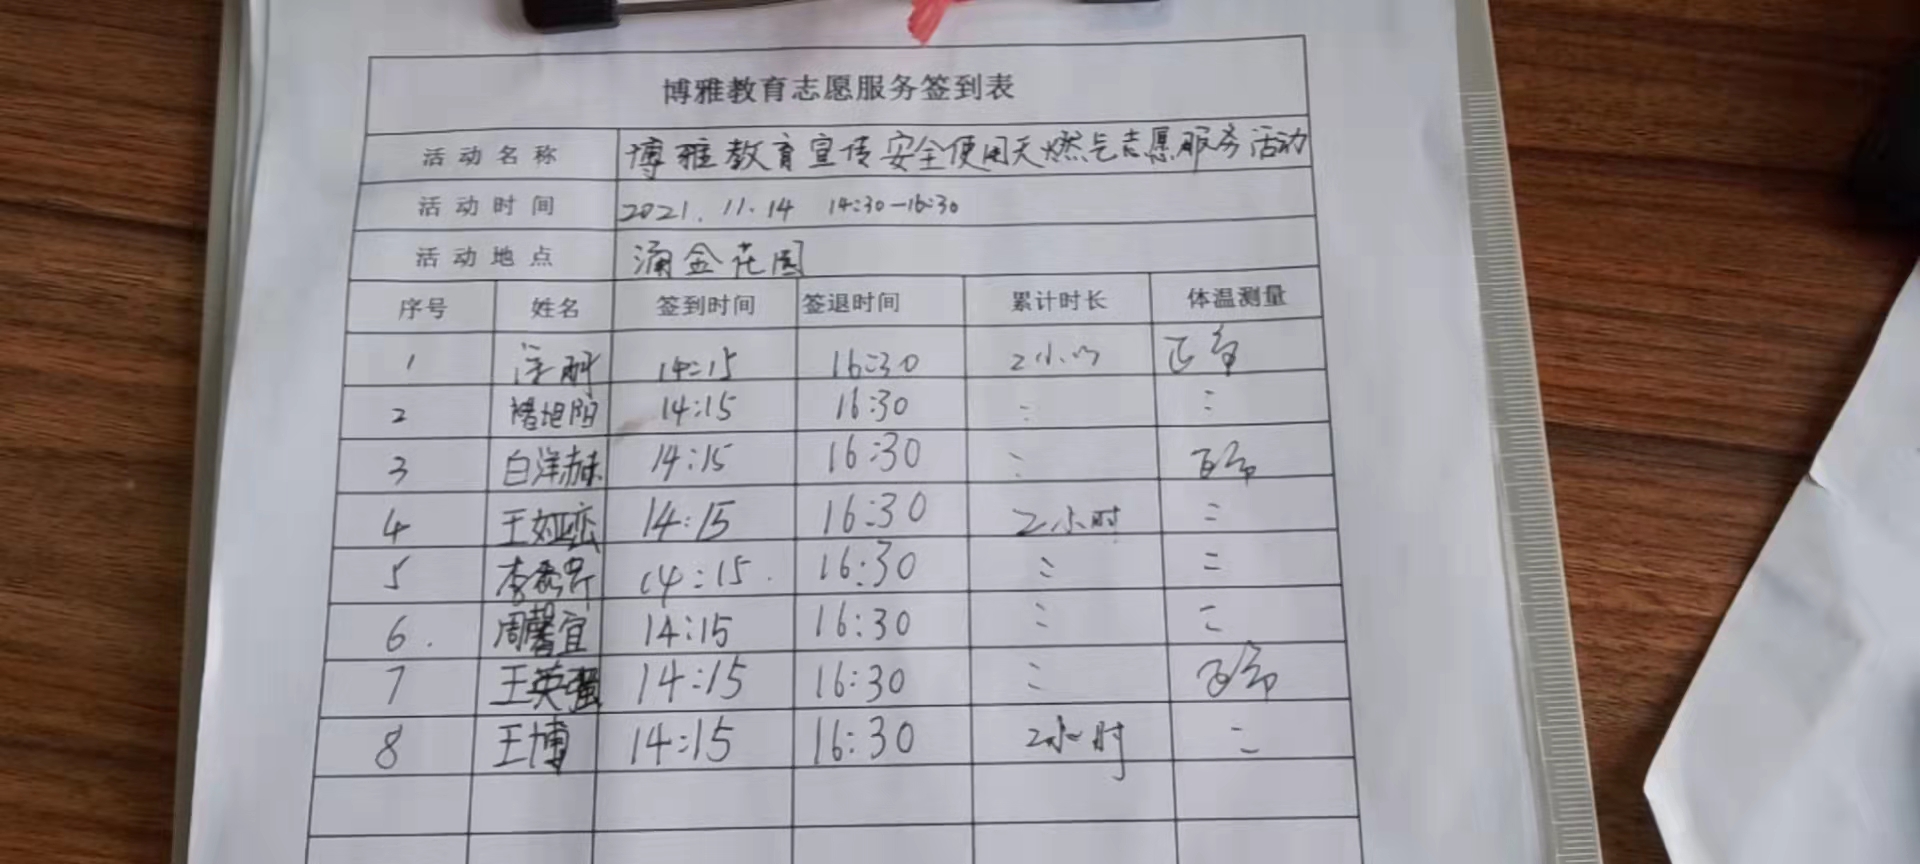 博雅教育志愿服务签到表
活动名称 博雅教育宣传安全使用天燃气志愿服务活动
活动时间 2021.11.14 14:30-16:30
活动地点 涌金花园
序号 姓名 签到时间 签退时间 累计时长 体温测量
1 14:15 16:30 2小时 正常
2 褚旭阳 14:15 16:30 〃 〃
3 白洋赫 14:15 16:30 〃 正常
4 王 14:15 16:30 2小时 〃
5 李 14:15 16:30 〃 〃
6. 周馨宜 14:15 16:30 〃 〃
7 王英强 14:15 16:30 〃 正常
8 王博 14:15 16:30 2小时 〃